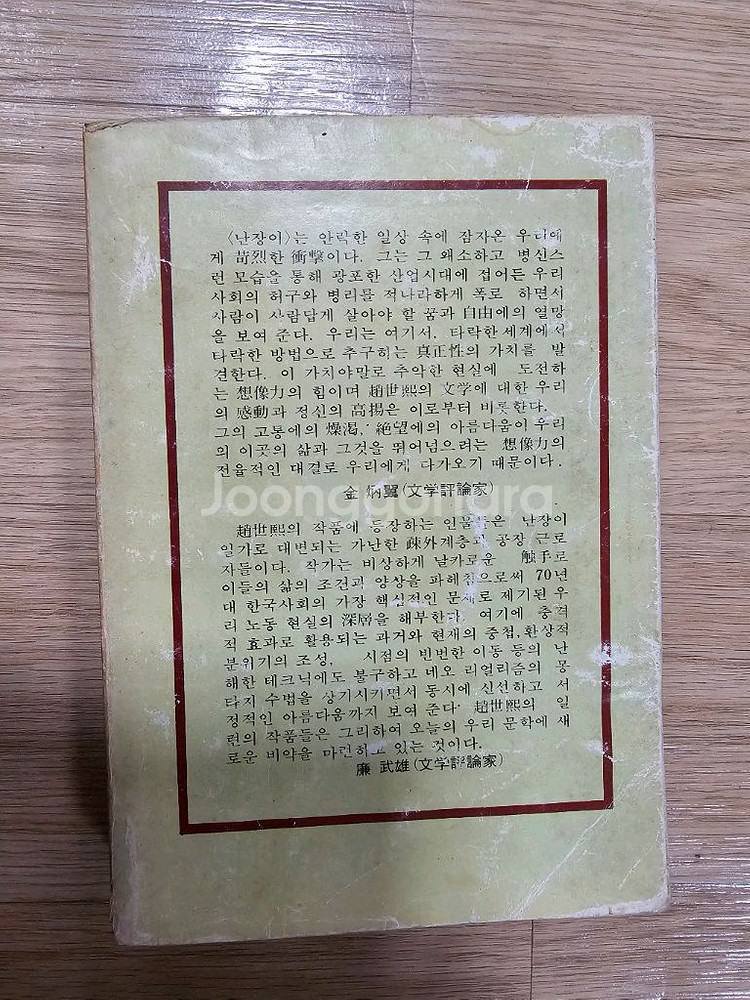 〈난장이〉는 안락한 일상 속에 잠자온 우리에
게 苛烈한 衝擊이다. 그는 그 왜소하고 병신스
런 모습을 통해 광포한 산업시대에 접어든 우리
사회의 허구와 병리를 적나라하게 폭로 하면서
사람이 사람답게 살아야 할 꿈과 自由에의 열망
을 보여 준다. 우리는 여기서, 타락한 세계에서
타락한 방법으로 추구하는 真正性의 가치를 발
견한다. 이 가치야말로 추악한 현실에 도전하
는 想像力의 힘이며 趙世熙의 文学에 대한 우리
의 感動과 정신의 高揚은 이로부터 비롯한다.
그의 고통에의 燥渴, 絶望에의 아름다움이 우리
의 이곳의 삶과 그것을 뛰어넘으려는 想像力의
전율적인 대결로 우리에게 다가오기 때문이다.
金 炳翼(文学評論家)
Joonggongra
趙世熙의 작품에 등장하는 인물들은 난장이
일가로 대변되는 가난한 疎外계층과 공장 근로
자들이다. 작가는 비상하게 날카로운 触手로
이들의 삶의 조건과 양상을 파헤침으로써 70년
대 한국사회의 가장 핵심적인 문제로 제기된 우
리 노동 현실의 深層을 해부한다. 여기에 충격
적 효과로 활용되는 과거와 현재의 중첩, 환상적
분위기의 조성, 시점의 빈번한 이동 등의 난
해한 테크닉에도 불구하고 네오 리얼리즘의 몽
타지 수법을 상기시키면서 동시에 신선하고 서
정적인 아름다움까지 보여 준다. 趙世熙의 일
련의 작품들은 그리하여 오늘의 우리 문학에 새
로운 비약을 마련하고 있는 것이다.
廉 武雄(文学評論家)